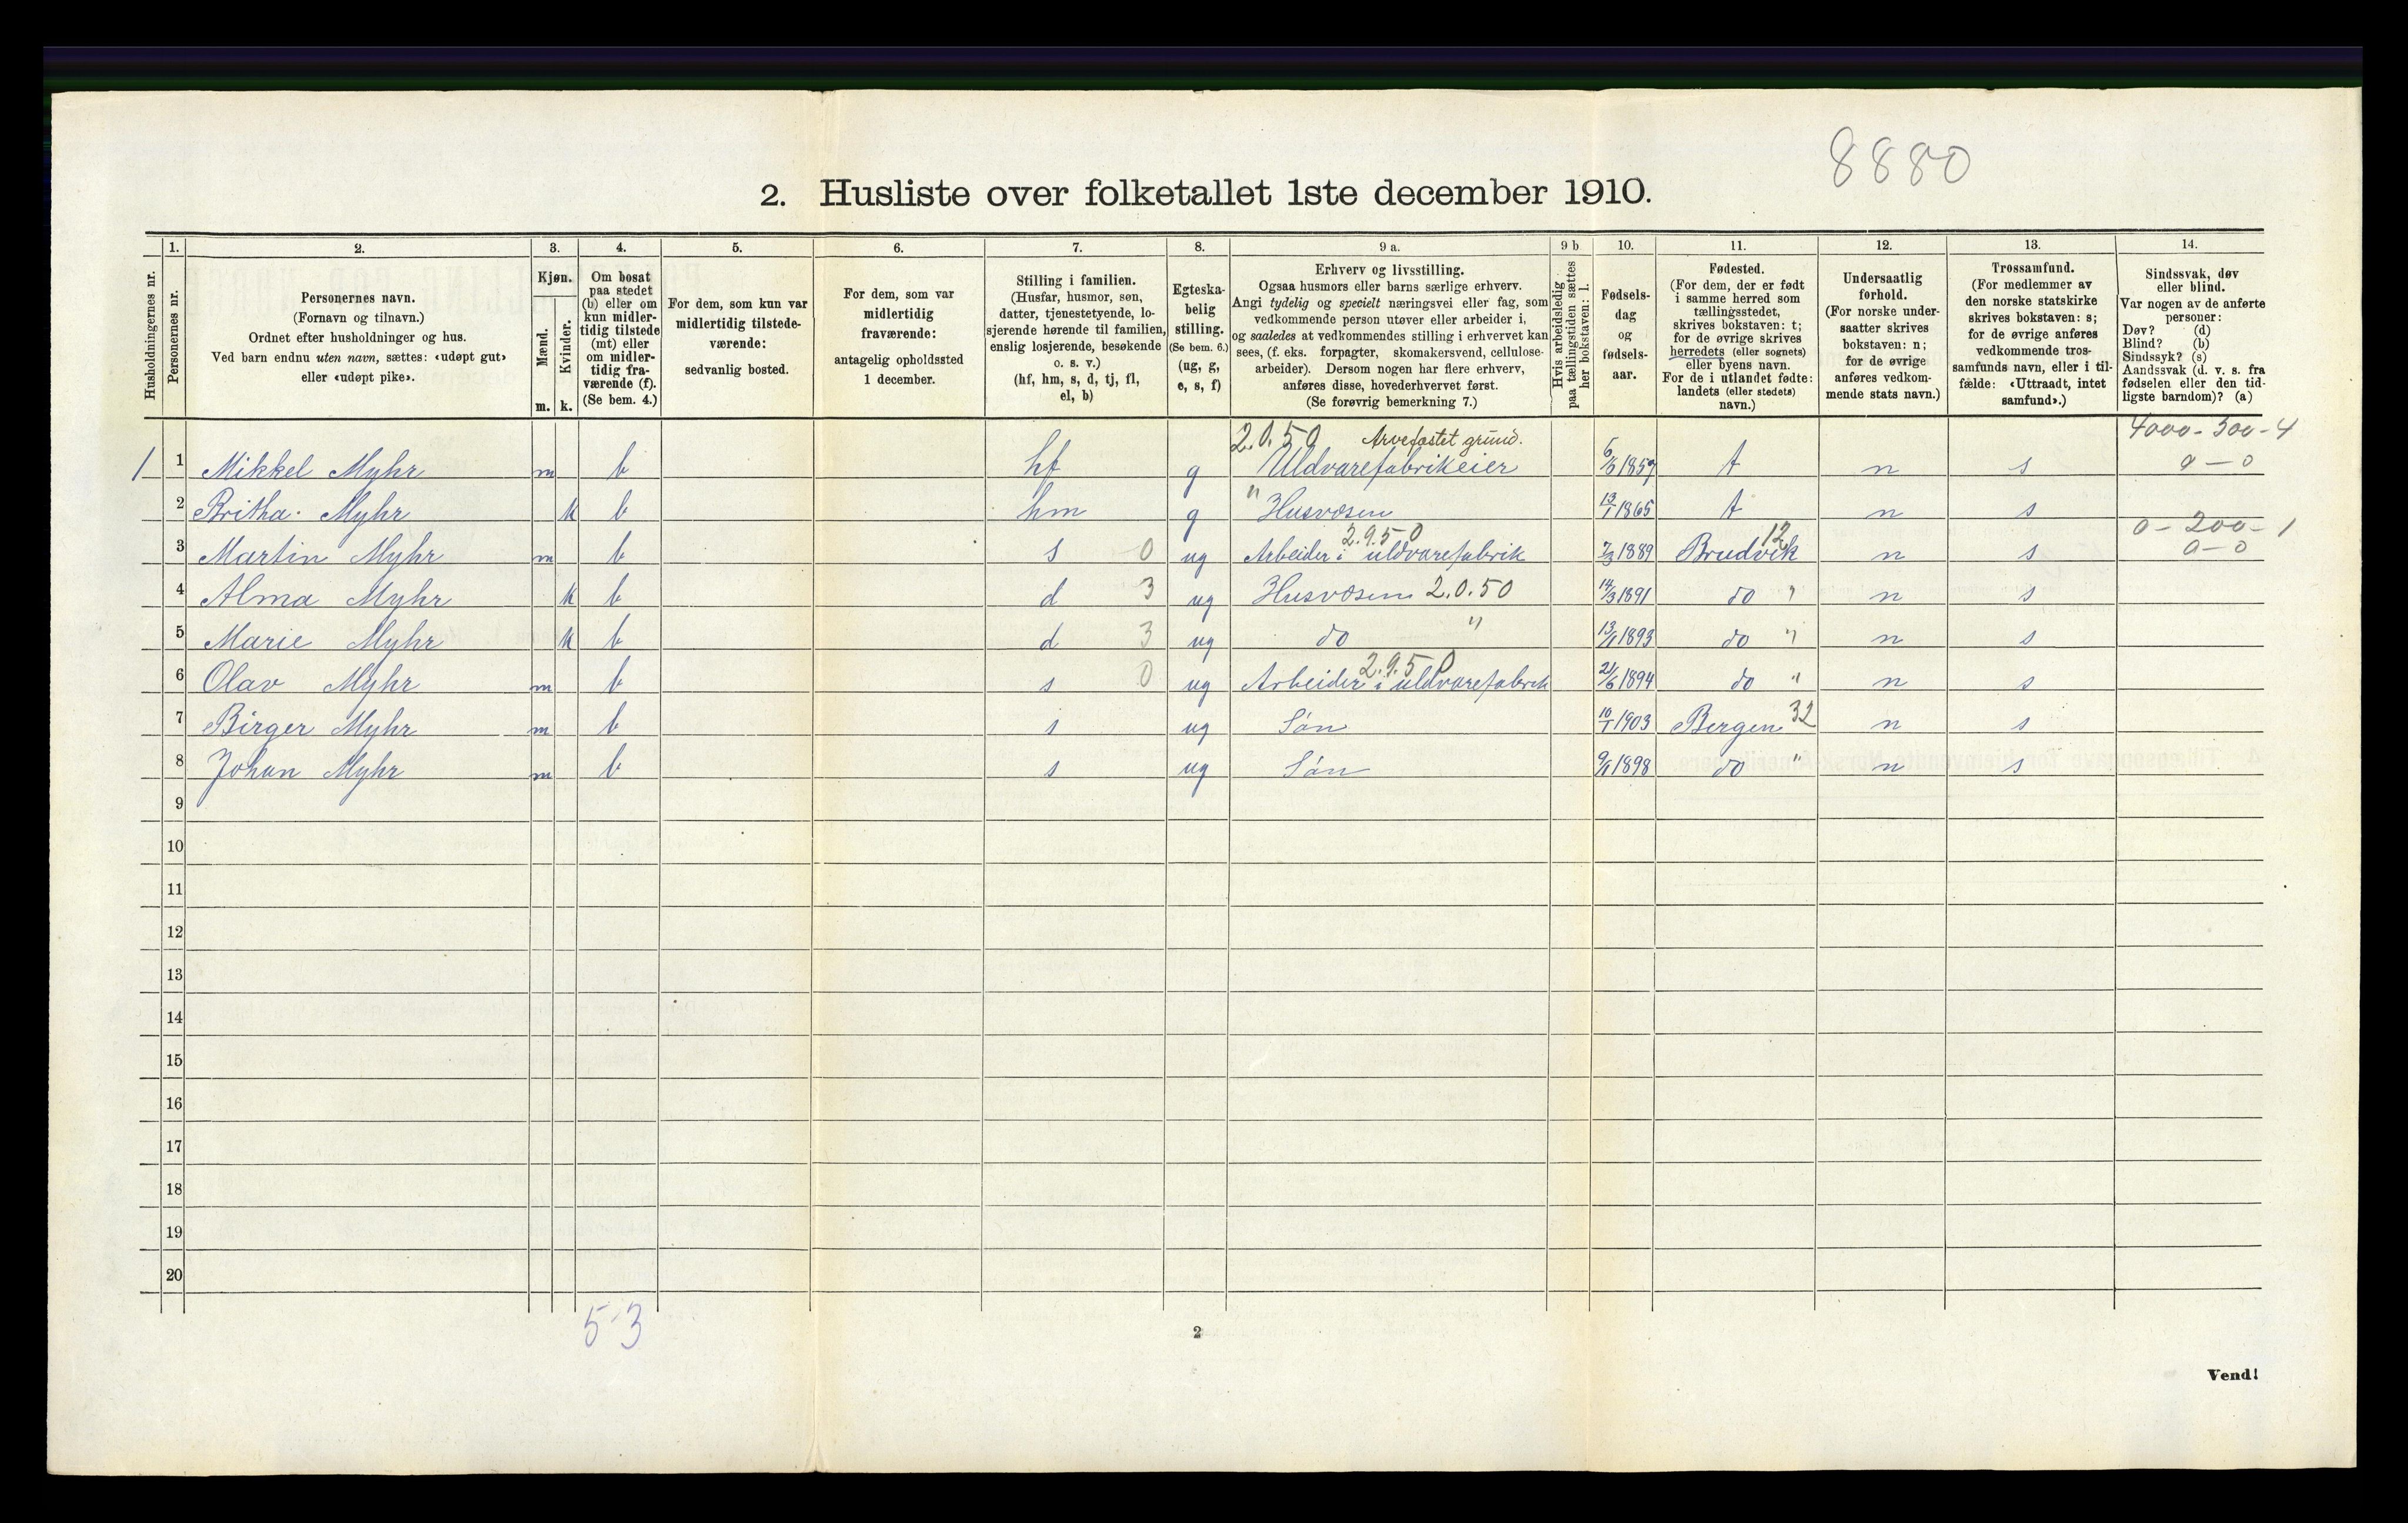 8880
2. Husliste over folketallet 1ste december 1910.
1. 2. 3. 4. 5. 6. 7. 8. 9 a. 9 b 10. 11. 12. 13. 14.
Husholdningernes nr.
Personernes nr.
Personernes navn.
(Fornavn og tilnavn.)
Ordnet efter husholdninger og hus.
Ved barn endnu uten navn, sættes: «udøpt gut»
eller «udøpt pike».
Kjøn.
Mænd.
Kvinder.
m. k.
Om bosat
paa stedet
(b) eller om
kun midler-
tidig tilstede
(mt) eller
om midler-
tidig fra-
værende (f).
(Se bem. 4.)
For dem, som kun var
midlertidig tilstede-
værende:
sedvanlig bosted.
For dem, som var
midlertidig
fraværende:
antagelig opholdssted
1 december.
Stilling i familien.
(Husfar, husmor, søn,
datter, tjenestetyende, lo-
sjerende hørende til familien,
enslig losjerende, besøkende
o. s. v.)
(hf, hm, s, d, tj, fl,
el, b)
Egteska-
belig
stilling.
(Se bem. 6.)
(ug, g,
e, s, f)
Erhverv og livsstilling.
Ogsaa husmors eller barns særlige erhverv.
Angi tydelig og specielt næringsvei eller fag, som
vedkommende person utøver eller arbeider i,
og saaledes at vedkommendes stilling i erhvervet kan
sees, (f. eks. forpagter, skomakersvend, cellulose-
arbeider). Dersom nogen har flere erhverv,
anføres disse, hovederhvervet først.
(Se forøvrig bemerkning 7.)
Hvis arbeidsledig
paa tællingstiden sættes
her bokstaven: l.
Fødsels-
dag
og
fødsels-
aar.
Fødested.
(For dem, der er født
i samme herred som
tællingsstedet,
skrives bokstaven: t;
for de øvrige skrives
herredets (eller sognets)
eller byens navn.
For de i utlandet fødte:
landets (eller stedets)
navn.)
Undersaatlig
forhold.
(For norske under-
saatter skrives
bokstaven: n;
for de øvrige
anføres vedkom-
mende stats navn.)
Trossamfund.
(For medlemmer av
den norske statskirke
skrives bokstaven: s;
for de øvrige anføres
vedkommende tros-
samfunds navn, eller i til-
fælde: «Uttraadt, intet
samfund».)
Sindssvak, døv
eller blind.
Var nogen av de anførte
personer:
Døv? (d)
Blind? (b)
Sindssyk? (s)
Aandssvak (d. v. s. fra
fødselen eller den tid-
ligste barndom)? (a)
2.0.50 Arvefæstet grund. 4000-300-4
1 1 Mikkel Myhr m b hf g Uldvarefabrikeier 1859 t n s 0-0
2 Britha Myhr k b hm g " Husvæsen 13/1 1865 t n s
2.9.50 12 0-200-1
3 Martin Myhr m b s 0 ug Arbeider i uldvarefabrik 7/3 1889 Brudvik n s 0-0
4 Alma Myhr k b d 3 ug Husvæsen 2.0.50 14/3 1891 do " n s
5 Marie Myhr k b d 3 ug do " 1893 do " n s
2.9.50
6 Olav Myhr m b s 0 ug Arbeider i uldvarefabrik 21/6 1894 do " n s
7 Birger Myhr m b s ug Søn 1903 Bergen 32 n s
8 Johan Myhr m b s ug Søn 1898 do " n s
9
10
11
12
13
14
15
16
17
18
19
20
5-3
2
Vend!